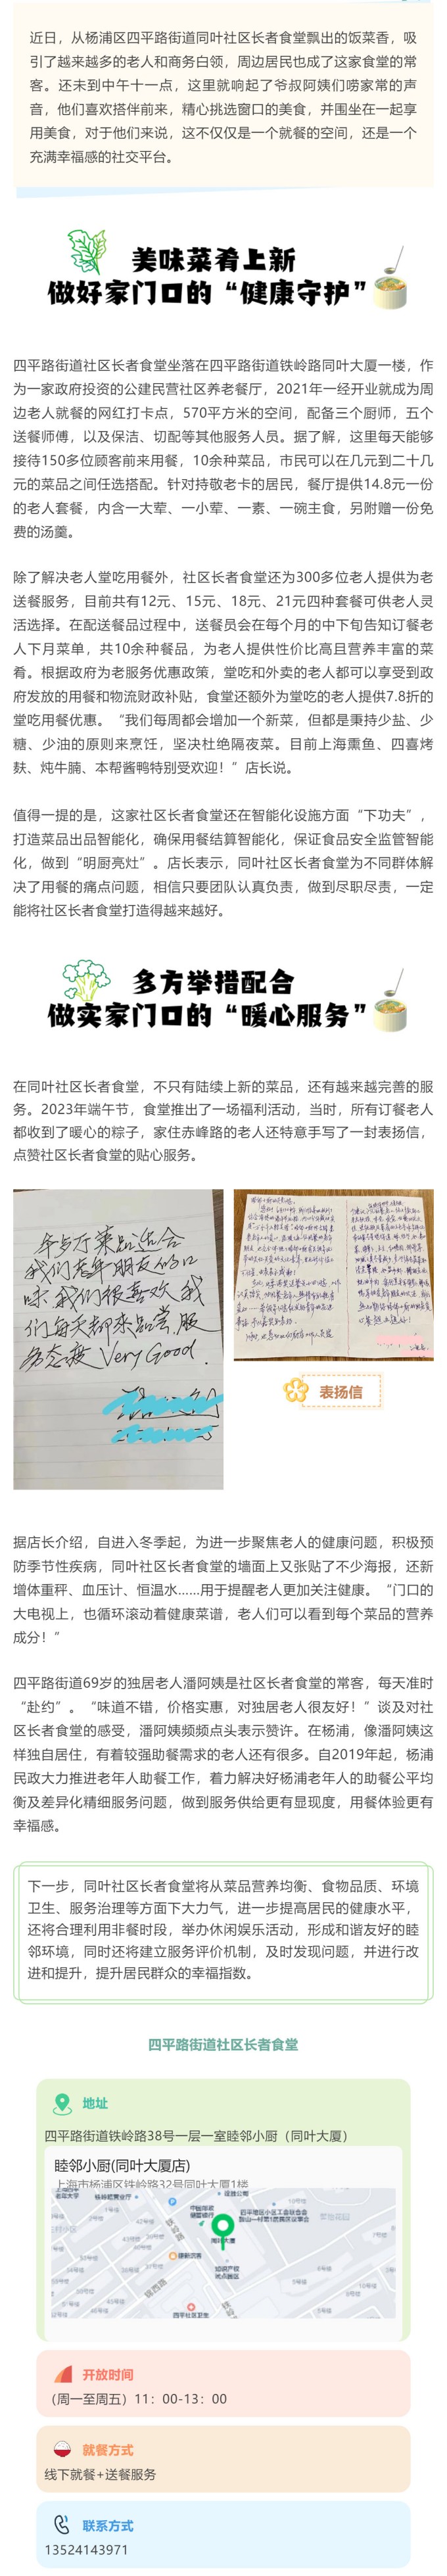 近日，从杨浦区四平路街道同叶社区长者食堂飘出的饭菜香，吸
引了越来越多的老人和商务白领，周边居民也成了这家食堂的常
客。还未到中午十一点，这里就响起了爷叔阿姨们唠家常的声
音，他们喜欢搭伴前来，精心挑选窗口的美食，并围坐在一起享
用美食，对于他们来说，这不仅仅是一个就餐的空间，还是一个
充满幸福感的社交平台。
美味菜肴上新
做好家门口的“健康守护”
四平路街道社区长者食堂坐落在四平路街道铁岭路同叶大厦一楼，作
为一家政府投资的公建民营社区养老餐厅，2021年一经开业就成为周
边老人就餐的网红打卡点，570平方米的空间，配备三个厨师，五个
送餐师傅，以及保洁、切配等其他服务人员。据了解，这里每天能够
接待150多位顾客前来用餐，10余种菜品，市民可以在几元到二十几
元的菜品之间任选搭配。针对持敬老卡的居民，餐厅提供14.8元一份
的老人套餐，内含一大荤、一小荤、一素、一碗主食，另附赠一份免
费的汤羹。
除了解决老人堂吃用餐外，社区长者食堂还为300多位老人提供为老
送餐服务，目前共有12元、15元、18元、21元四种套餐可供老人灵
活选择。在配送餐品过程中，送餐员会在每个月的中下旬告知订餐老
人下月菜单，共10余种餐品，为老人提供性价比高且营养丰富的菜
肴。根据政府为老服务优惠政策，堂吃和外卖的老人都可以享受到政
府发放的用餐和物流财政补贴，食堂还额外为堂吃的老人提供7.8折的
堂吃用餐优惠。“我们每周都会增加一个新菜，但都是秉持少盐、少
糖、少油的原则来烹饪，坚决杜绝隔夜菜。目前上海熏鱼、四喜烤
麸、炖牛腩、本帮酱鸭特别受欢迎！”店长说。
值得一提的是，这家社区长者食堂还在智能化设施方面“下功夫”，
打造菜品出品智能化，确保用餐结算智能化，保证食品安全监管智能
化，做到“明厨亮灶”。店长表示，同叶社区长者食堂为不同群体解
决了用餐的痛点问题，相信只要团队认真负责，做到尽职尽责，一定
能将社区长者食堂打造得越来越好。
多方举措配合
做实家门口的“暖心服务”
在同叶社区长者食堂，不只有陆续上新的菜品，还有越来越完善的服
务。2023年端午节，食堂推出了一场福利活动，当时，所有订餐老人
都收到了暖心的粽子，家住赤峰路的老人还特意手写了一封表扬信，
点赞社区长者食堂的贴心服务。
菜品适合
我们老年朋友的口
味.我们很喜欢.我
们每天都来品尝.服
务态度 Very Good.
表扬信
据店长介绍，自进入冬季起，为进一步聚焦老人的健康问题，积极预
防季节性疾病，同叶社区长者食堂的墙面上又张贴了不少海报，还新
增体重秤、血压计、恒温水......用于提醒老人更加关注健康。“门口的
大电视上，也循环滚动着健康菜谱，老人们可以看到每个菜品的营养
成分！”
四平路街道69岁的独居老人潘阿姨是社区长者食堂的常客，每天准时
“赴约”。“味道不错，价格实惠，对独居老人很友好！”谈及对社
区长者食堂的感受，潘阿姨频频点头表示赞许。在杨浦，像潘阿姨这
样独自居住，有着较强助餐需求的老人还有很多。自2019年起，杨浦
民政大力推进老年人助餐工作，着力解决好杨浦老年人的助餐公平均
衡及差异化精细服务问题，做到服务供给更有显现度，用餐体验更有
幸福感。
下一步，同叶社区长者食堂将从菜品营养均衡、食物品质、环境
卫生、服务治理等方面下大力气，进一步提高居民的健康水平，
还将合理利用非餐时段，举办休闲娱乐活动，形成和谐友好的睦
邻环境，同时还将建立服务评价机制，及时发现问题，并进行改
进和提升，提升居民群众的幸福指数。
四平路街道社区长者食堂
地址
四平路街道铁岭路38号一层一室睦邻小厨（同叶大厦）
睦邻小厨(同叶大厦店)
上海市杨浦区铁岭路32号同叶大厦1楼
四平社区卫生
开放时间
（周一至周五）11：00-13：00
就餐方式
线下就餐+送餐服务
联系方式
13524143971